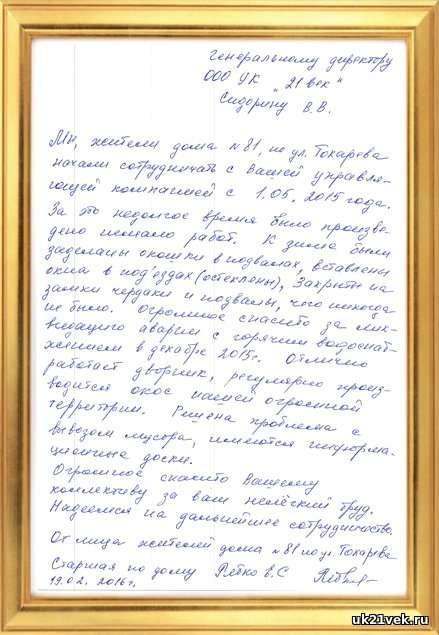 Генеральному директору
ООО УК "21 век"
Сидорину В.В.
Мы, жители дома №81, по ул. Токарева
начали сотрудничать с Вашей управля-
ющей компанией с 1.05. 2015 года.
За это недолгое время было произве-
дено немало работ. К зиме были
заделаны окошки в подвалах, вставлены
окна в под'ездах (остеклены), закрыты на
замки чердаки и подвалы, чего никогда
не было. Огромное спасибо за лик-
видацию аварии с горячим водоснаб-
жением в декабре 2015г. Отлично
работает дворник, регулярно произ-
водится окос нашей огромной
территории. Решена проблема с
вывозом мусора, имеются информа-
ционные доски.
Огромное спасибо Вашему
коллективу за ваш нелёгкий труд.
Надеемся на дальнейшее сотрудничество.
От лица жителей дома №81 по ул. Токарева
Старшая по дому Петко В.С
19.02. 2016г.
uk21vek.ru